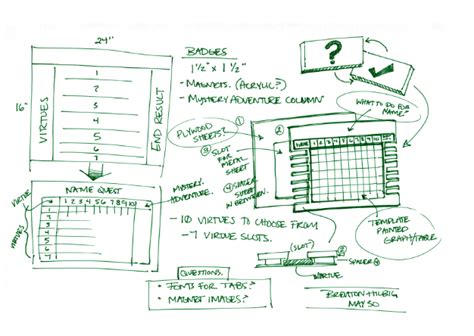 24"
16"
VIRTUES
1
2
3
4
5
6
7
END RESULT
BADGES
1 1/2" x 1 1/2"
- MAGNETS. (ACRYLIC?)
- MYSTERY ADVENTURE COLUMN
?
WHAT TO DO FOR
NAME?
PLYWOOD
SHEETS?
1
3
SLOT
FOR
METAL
SHEET
SPACER
SHEET
IN BETWEEN
NAME
1 2 3 4 5 6 7 8 9 10
TEMPLATE
PAINTED
GRAPH/TABLE
VIRTUE
VIRTUES
NAME QUEST
1 2 3 4 5 6 7 8 9 10
1
2
3
4
7
MYSTERY
ADVENTURE.
- 10 VIRTUES TO CHOOSE FROM
- 7 VIRTUE SLOTS.
(SLOT)
2
SPACER
VIRTUE
QUESTIONS.
• FONTS FOR TABS?
• MAGNET IMAGES?
MAY 30